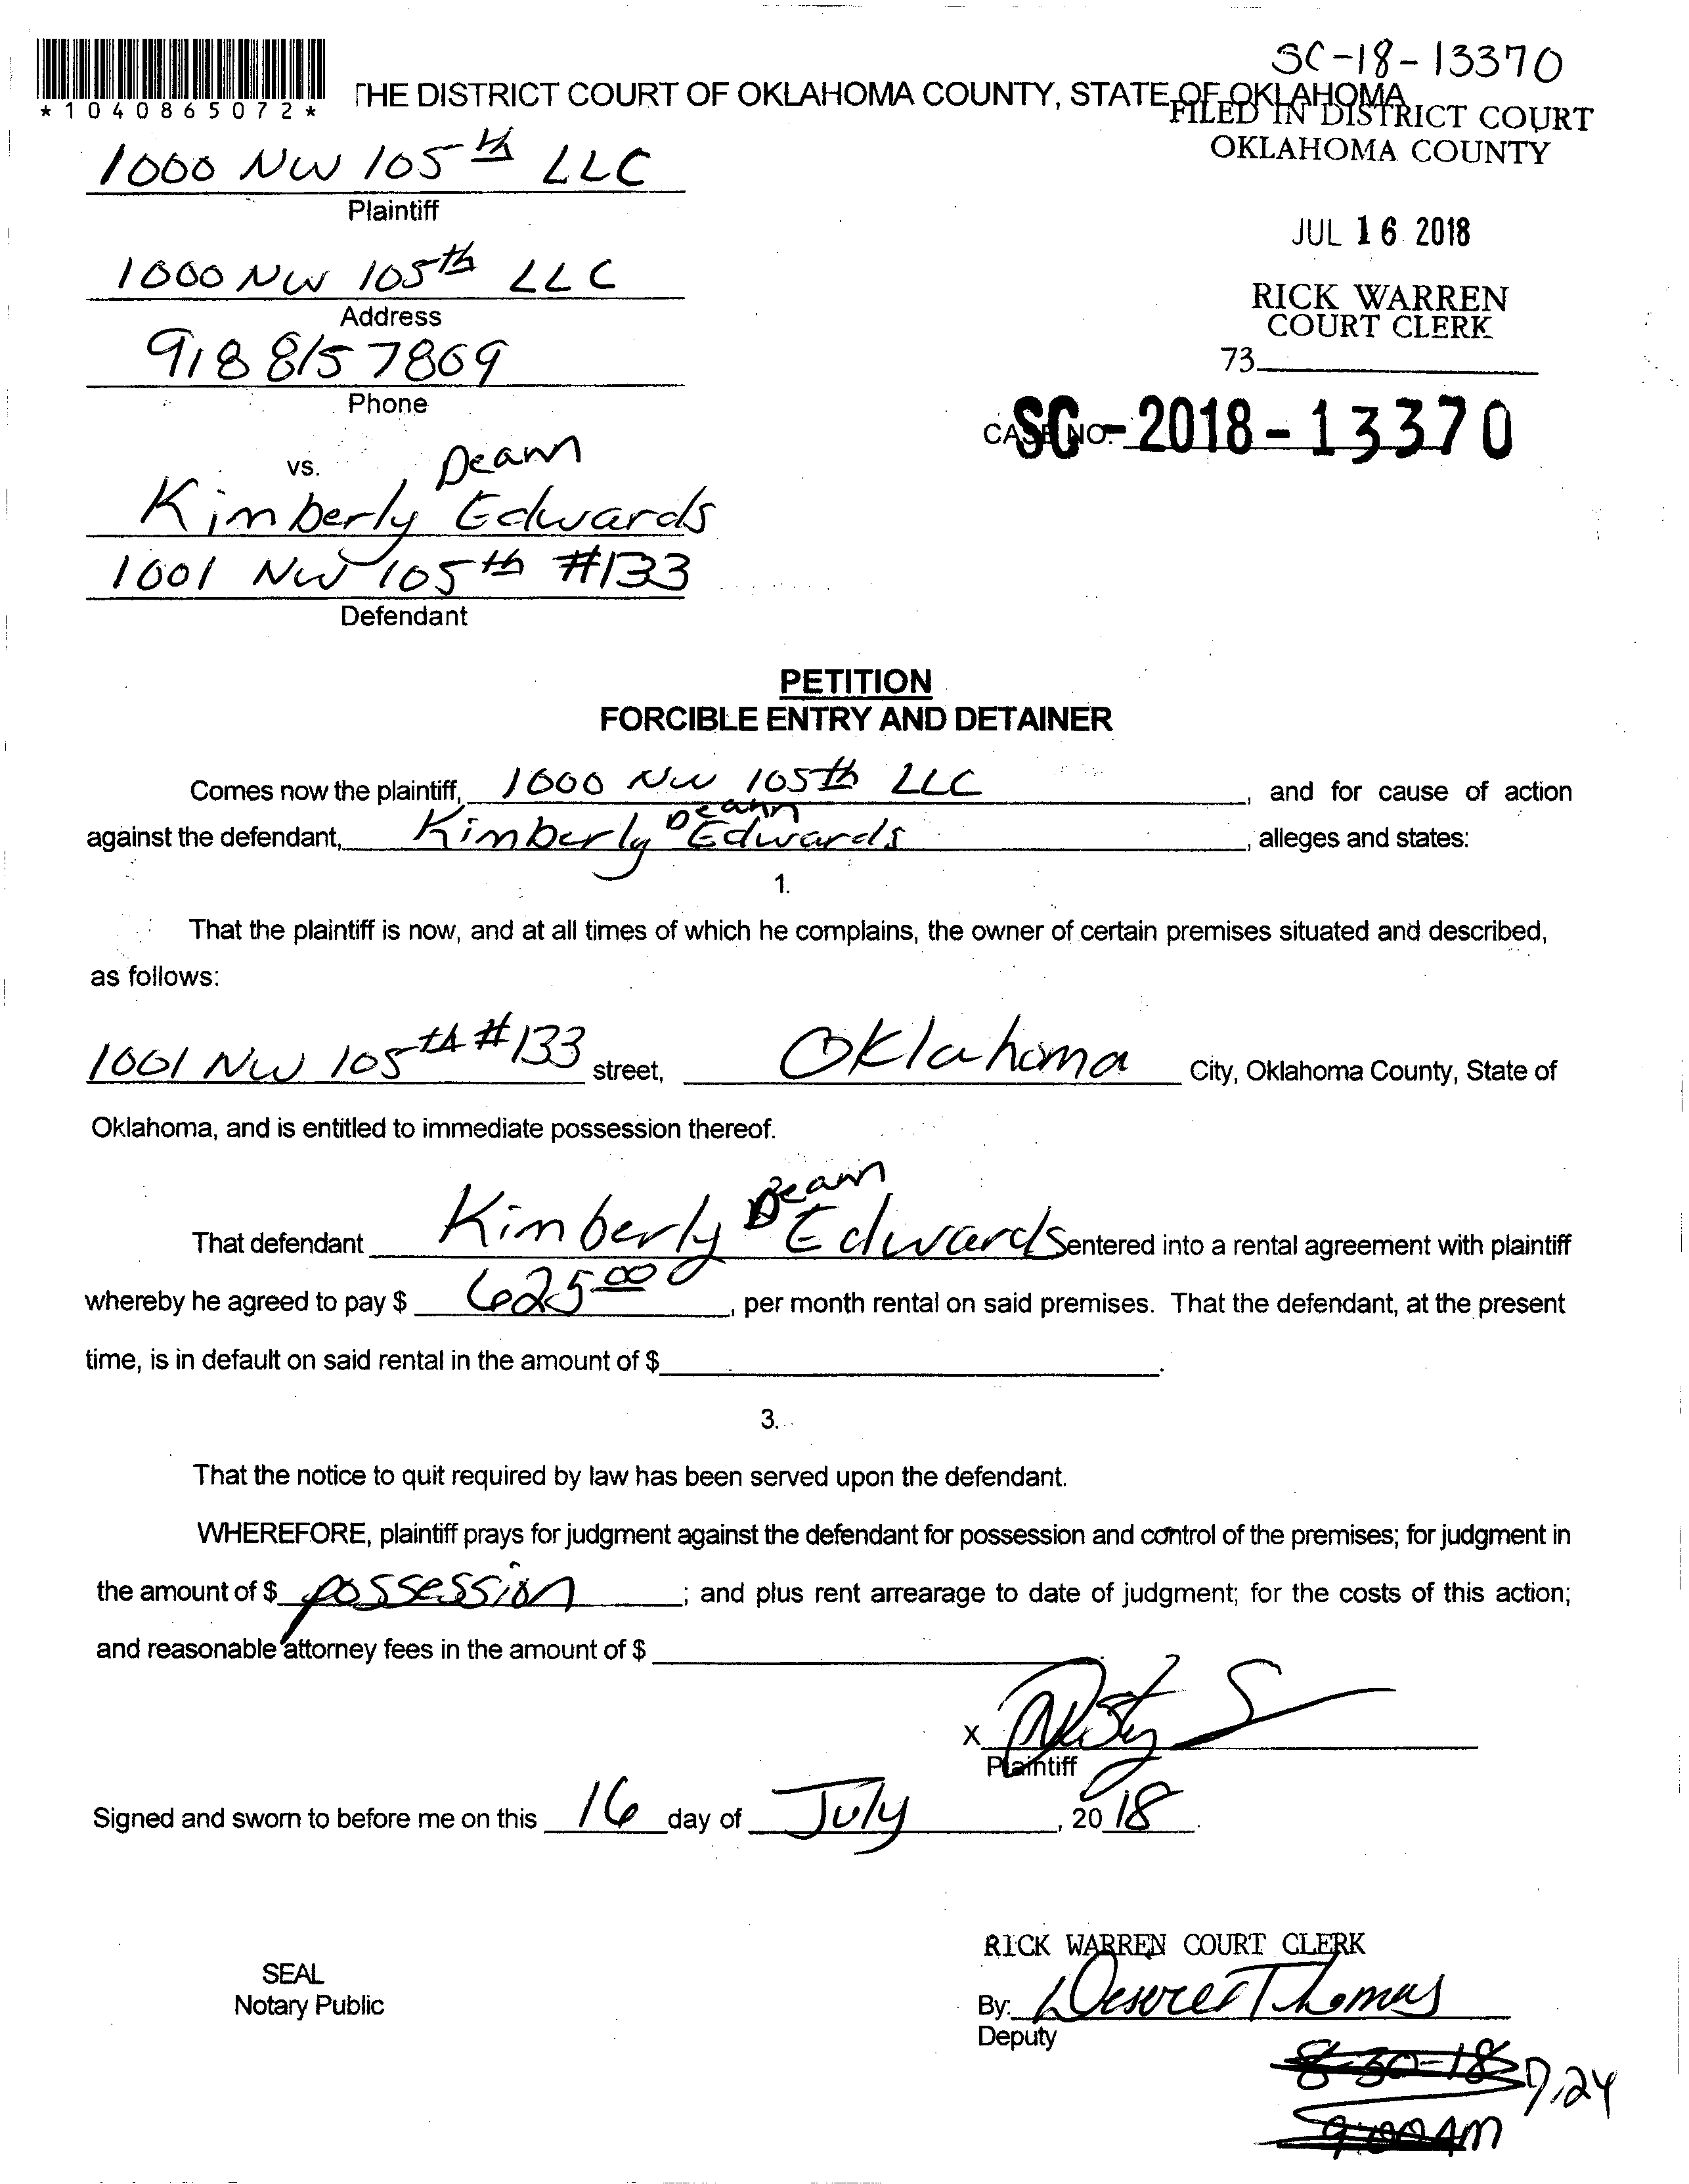 SC-18-13370
THE DISTRICT COURT OF OKLAHOMA COUNTY, STATE OF OKLAHOMA
*1040865072*
FILED IN DISTRICT COURT
OKLAHOMA COUNTY
1000 NW 105th LLC
Plaintiff
JUL 16 2018
1000 NW 105th LLC
Address
RICK WARREN
COURT CLERK
918 815 7869
73
Phone
CASE NO. SC-2018-13370
vs.
Deann
Kimberly Edwards
1001 NW 105th #133
Defendant
PETITION
FORCIBLE ENTRY AND DETAINER
Comes now the plaintiff, 1000 NW 105th LLC, and for cause of action
against the defendant, Kimberly Deann Edwards, alleges and states:
1.
That the plaintiff is now, and at all times of which he complains, the owner of certain premises situated and described,
as follows:
1001 NW 105th #133 street, Oklahoma City, Oklahoma County, State of
Oklahoma, and is entitled to immediate possession thereof.
That defendant Kimberly Deann Edwards entered into a rental agreement with plaintiff
whereby he agreed to pay $ 625.00, per month rental on said premises. That the defendant, at the present
time, is in default on said rental in the amount of $ .
3.
That the notice to quit required by law has been served upon the defendant.
WHEREFORE, plaintiff prays for judgment against the defendant for possession and control of the premises; for judgment in
the amount of $ possession; and plus rent arrearage to date of judgment; for the costs of this action;
and reasonable attorney fees in the amount of $
X
Plaintiff
Signed and sworn to before me on this 16 day of July, 2018.
RICK WARREN COURT CLERK
SEAL
Notary Public
By: Deseree Thomas
Deputy
8-30-18 7,24
9:00AM